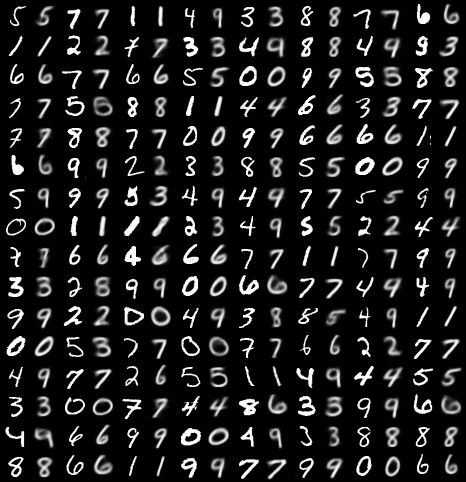 5 5 7 7 1 1 4 9 3 3 8 8 7 7 6 6
1 1 2 2 7 7 3 3 4 9 8 8 4 4 9 3
6 6 7 7 6 6 5 5 0 0 9 9 5 5 8 8
7 7 5 5 8 8 1 1 4 4 6 6 3 3 7 7
7 7 8 8 7 7 0 0 9 9 6 6 6 6 1 1
6 6 9 9 2 2 3 3 8 8 5 5 0 0 9 9
5 9 9 9 5 3 4 9 4 9 7 7 5 5 9 9
0 0 1 1 1 1 2 3 4 9 5 5 2 2 4 4
7 7 6 6 4 6 6 6 7 7 1 1 7 7 9 9
3 3 2 8 9 9 0 0 6 6 7 7 4 4 4 9
9 9 2 2 0 0 4 9 3 8 8 5 4 9 1 1
0 0 5 3 7 7 0 0 7 7 6 6 2 2 7 7
4 9 7 7 2 6 5 5 1 1 4 9 4 4 5 5
3 3 0 0 7 7 4 4 8 6 3 3 9 9 6 6
4 9 6 6 9 9 0 0 4 9 3 3 8 8 8 8
8 8 6 6 1 1 9 9 7 7 9 9 0 0 6 6